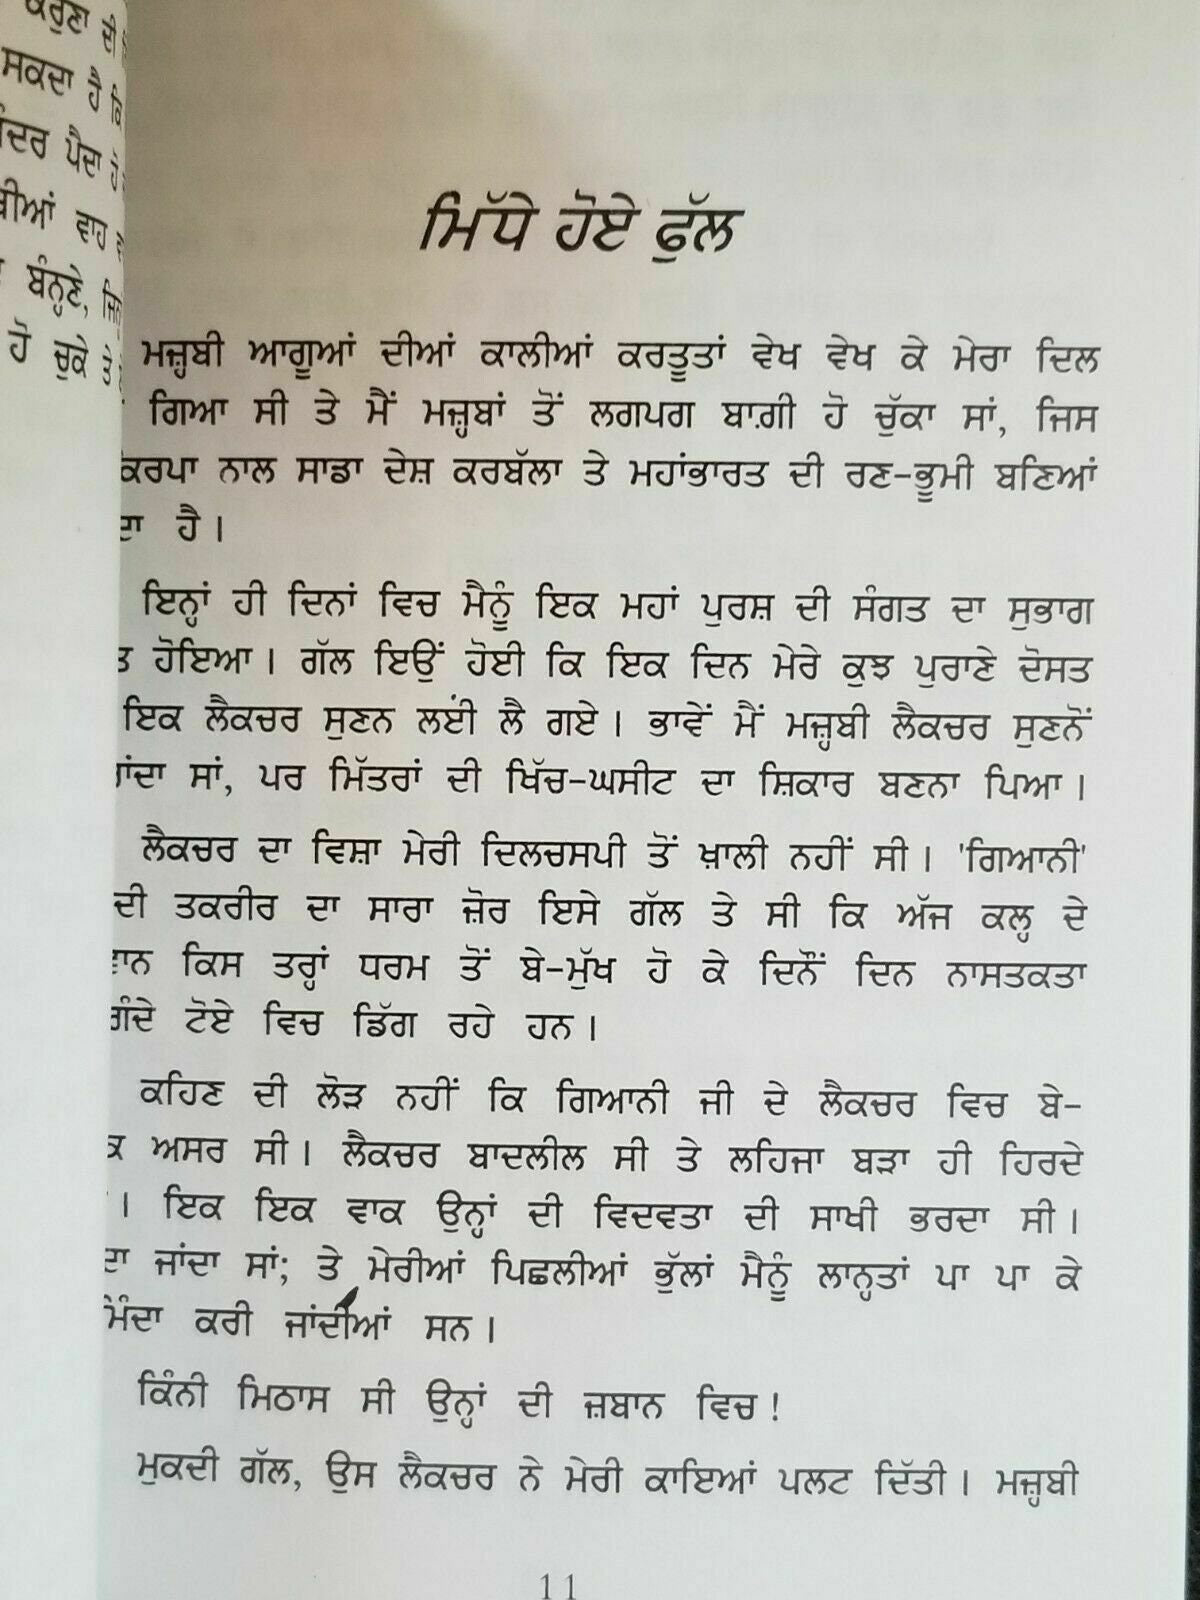 ਸਕਦਾ ਹੈ ਕਿ
ਪੈਦਾ
ਵਾਹ
ਬੰਨ੍ਹਣੇ,
ਹੋ ਚੁਕੇ ਤੇ
ਮਿੱਧੇ ਹੋਏ ਫੁੱਲ
ਮਜ਼੍ਹਬੀ ਆਗੂਆਂ ਦੀਆਂ ਕਾਲੀਆਂ ਕਰਤੂਤਾਂ ਵੇਖ ਵੇਖ ਕੇ ਮੇਰਾ ਦਿਲ
ਗਿਆ ਸੀ ਤੇ ਮੈਂ ਮਜ਼੍ਹਬਾਂ ਤੋਂ ਲਗਪਗ ਬਾਗ਼ੀ ਹੋ ਚੁੱਕਾ ਸਾਂ, ਜਿਸ
ਕਿਰਪਾ ਨਾਲ ਸਾਡਾ ਦੇਸ਼ ਕਰਬੱਲਾ ਤੇ ਮਹਾਂਭਾਰਤ ਦੀ ਰਣ-ਭੂਮੀ ਬਣਿਆਂ
ਦਾ ਹੈ।
ਇਨ੍ਹਾਂ ਹੀ ਦਿਨਾਂ ਵਿਚ ਮੈਨੂੰ ਇਕ ਮਹਾਂ ਪੁਰਸ਼ ਦੀ ਸੰਗਤ ਦਾ ਸੁਭਾਗ
ਤ ਹੋਇਆ। ਗੱਲ ਇਉਂ ਹੋਈ ਕਿ ਇਕ ਦਿਨ ਮੇਰੇ ਕੁਝ ਪੁਰਾਣੇ ਦੋਸਤ
ਇਕ ਲੈਕਚਰ ਸੁਣਨ ਲਈ ਲੈ ਗਏ। ਭਾਵੇਂ ਮੈਂ ਮਜ਼੍ਹਬੀ ਲੈਕਚਰ ਸੁਣਨੋਂ
ਾਂਦਾ ਸਾਂ, ਪਰ ਮਿੱਤਰਾਂ ਦੀ ਖਿੱਚ-ਘਸੀਟ ਦਾ ਸ਼ਿਕਾਰ ਬਣਨਾ ਪਿਆ।
ਲੈਕਚਰ ਦਾ ਵਿਸ਼ਾ ਮੇਰੀ ਦਿਲਚਸਪੀ ਤੋਂ ਖ਼ਾਲੀ ਨਹੀਂ ਸੀ। 'ਗਿਆਨੀ'
ਦੀ ਤਕਰੀਰ ਦਾ ਸਾਰਾ ਜ਼ੋਰ ਇਸੇ ਗੱਲ ਤੇ ਸੀ ਕਿ ਅੱਜ ਕਲ੍ਹ ਦੇ
ਵਾਨ ਕਿਸ ਤਰ੍ਹਾਂ ਧਰਮ ਤੋਂ ਬੇ-ਮੁੱਖ ਹੋ ਕੇ ਦਿਨੋਂ ਦਿਨ ਨਾਸਤਕਤਾ
ਗੰਦੇ ਟੋਏ ਵਿਚ ਡਿੱਗ ਰਹੇ ਹਨ।
ਕਹਿਣ ਦੀ ਲੋੜ ਨਹੀਂ ਕਿ ਗਿਆਨੀ ਜੀ ਦੇ ਲੈਕਚਰ ਵਿਚ ਬੇ-
ਕ ਅਸਰ ਸੀ। ਲੈਕਚਰ ਬਾਦਲੀਲ ਸੀ ਤੇ ਲਹਿਜਾ ਬੜਾ ਹੀ ਹਿਰਦੇ
। ਇਕ ਇਕ ਵਾਕ ਉਨ੍ਹਾਂ ਦੀ ਵਿਦਵਤਾ ਦੀ ਸਾਖੀ ਭਰਦਾ ਸੀ।
ਦਾ ਜਾਂਦਾ ਸਾਂ; ਤੇ ਮੇਰੀਆਂ ਪਿਛਲੀਆਂ ਭੁੱਲਾਂ ਮੈਨੂੰ ਲਾਨ੍ਹਤਾਂ ਪਾ ਪਾ ਕੇ
ਮਿੰਦਾ ਕਰੀ ਜਾਂਦੀਆਂ ਸਨ।
ਕਿੰਨੀ ਮਿਠਾਸ ਸੀ ਉਨ੍ਹਾਂ ਦੀ ਜ਼ਬਾਨ ਵਿਚ!
ਮੁਕਦੀ ਗੱਲ, ਉਸ ਲੈਕਚਰ ਨੇ ਮੇਰੀ ਕਾਇਆਂ ਪਲਟ ਦਿੱਤੀ। ਮਜ਼੍ਹਬੀ
11